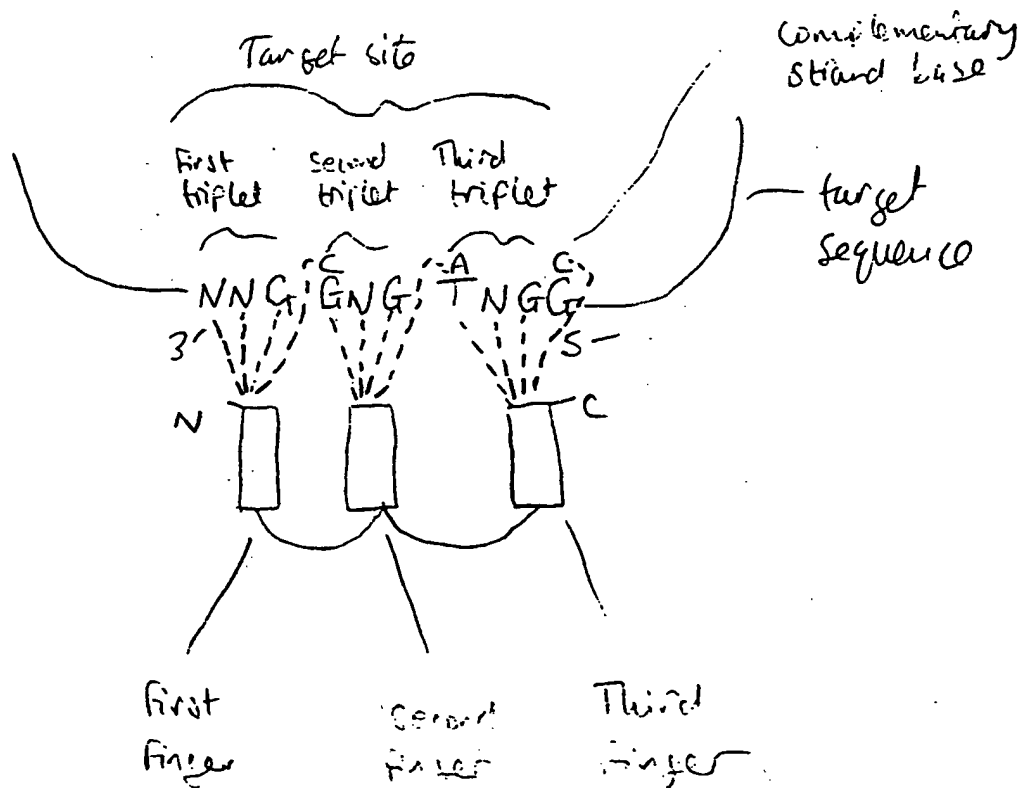 Target site
complementary
strand base
First
triplet
Second
triplet
Third
triplet
target
sequence
C A C
NNG GNG TNGG
3' 5
N C
First
Finger
Second
Finger
Third
Finger